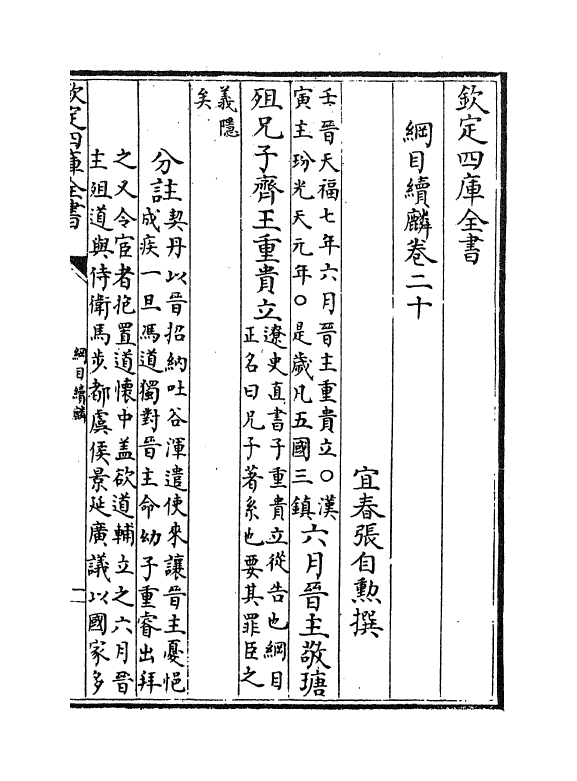 欽定四庫全書
綱目續麟卷二十
宜春張自勲撰
壬晉天福七年六月晉主重貴立〇漢
寅主玢光天元年〇是歲凡五國三鎮
六月晉主敬瑭
殂兄子齊王重貴立
遼史直書子重貴立從告也綱目
正名曰兄子著系也要其罪臣之
義隱
矣
分註
契丹以晉招納吐谷渾遣使來讓晉主憂悒
成疾一旦馮道獨對晉主命幼子重睿出拜
之又令宦者抱置道懷中盖欲道輔立之六月晉
主殂道與侍衛馬步都虞侯景延廣議以國家多
欽定四庫全書
綱目續麟
一